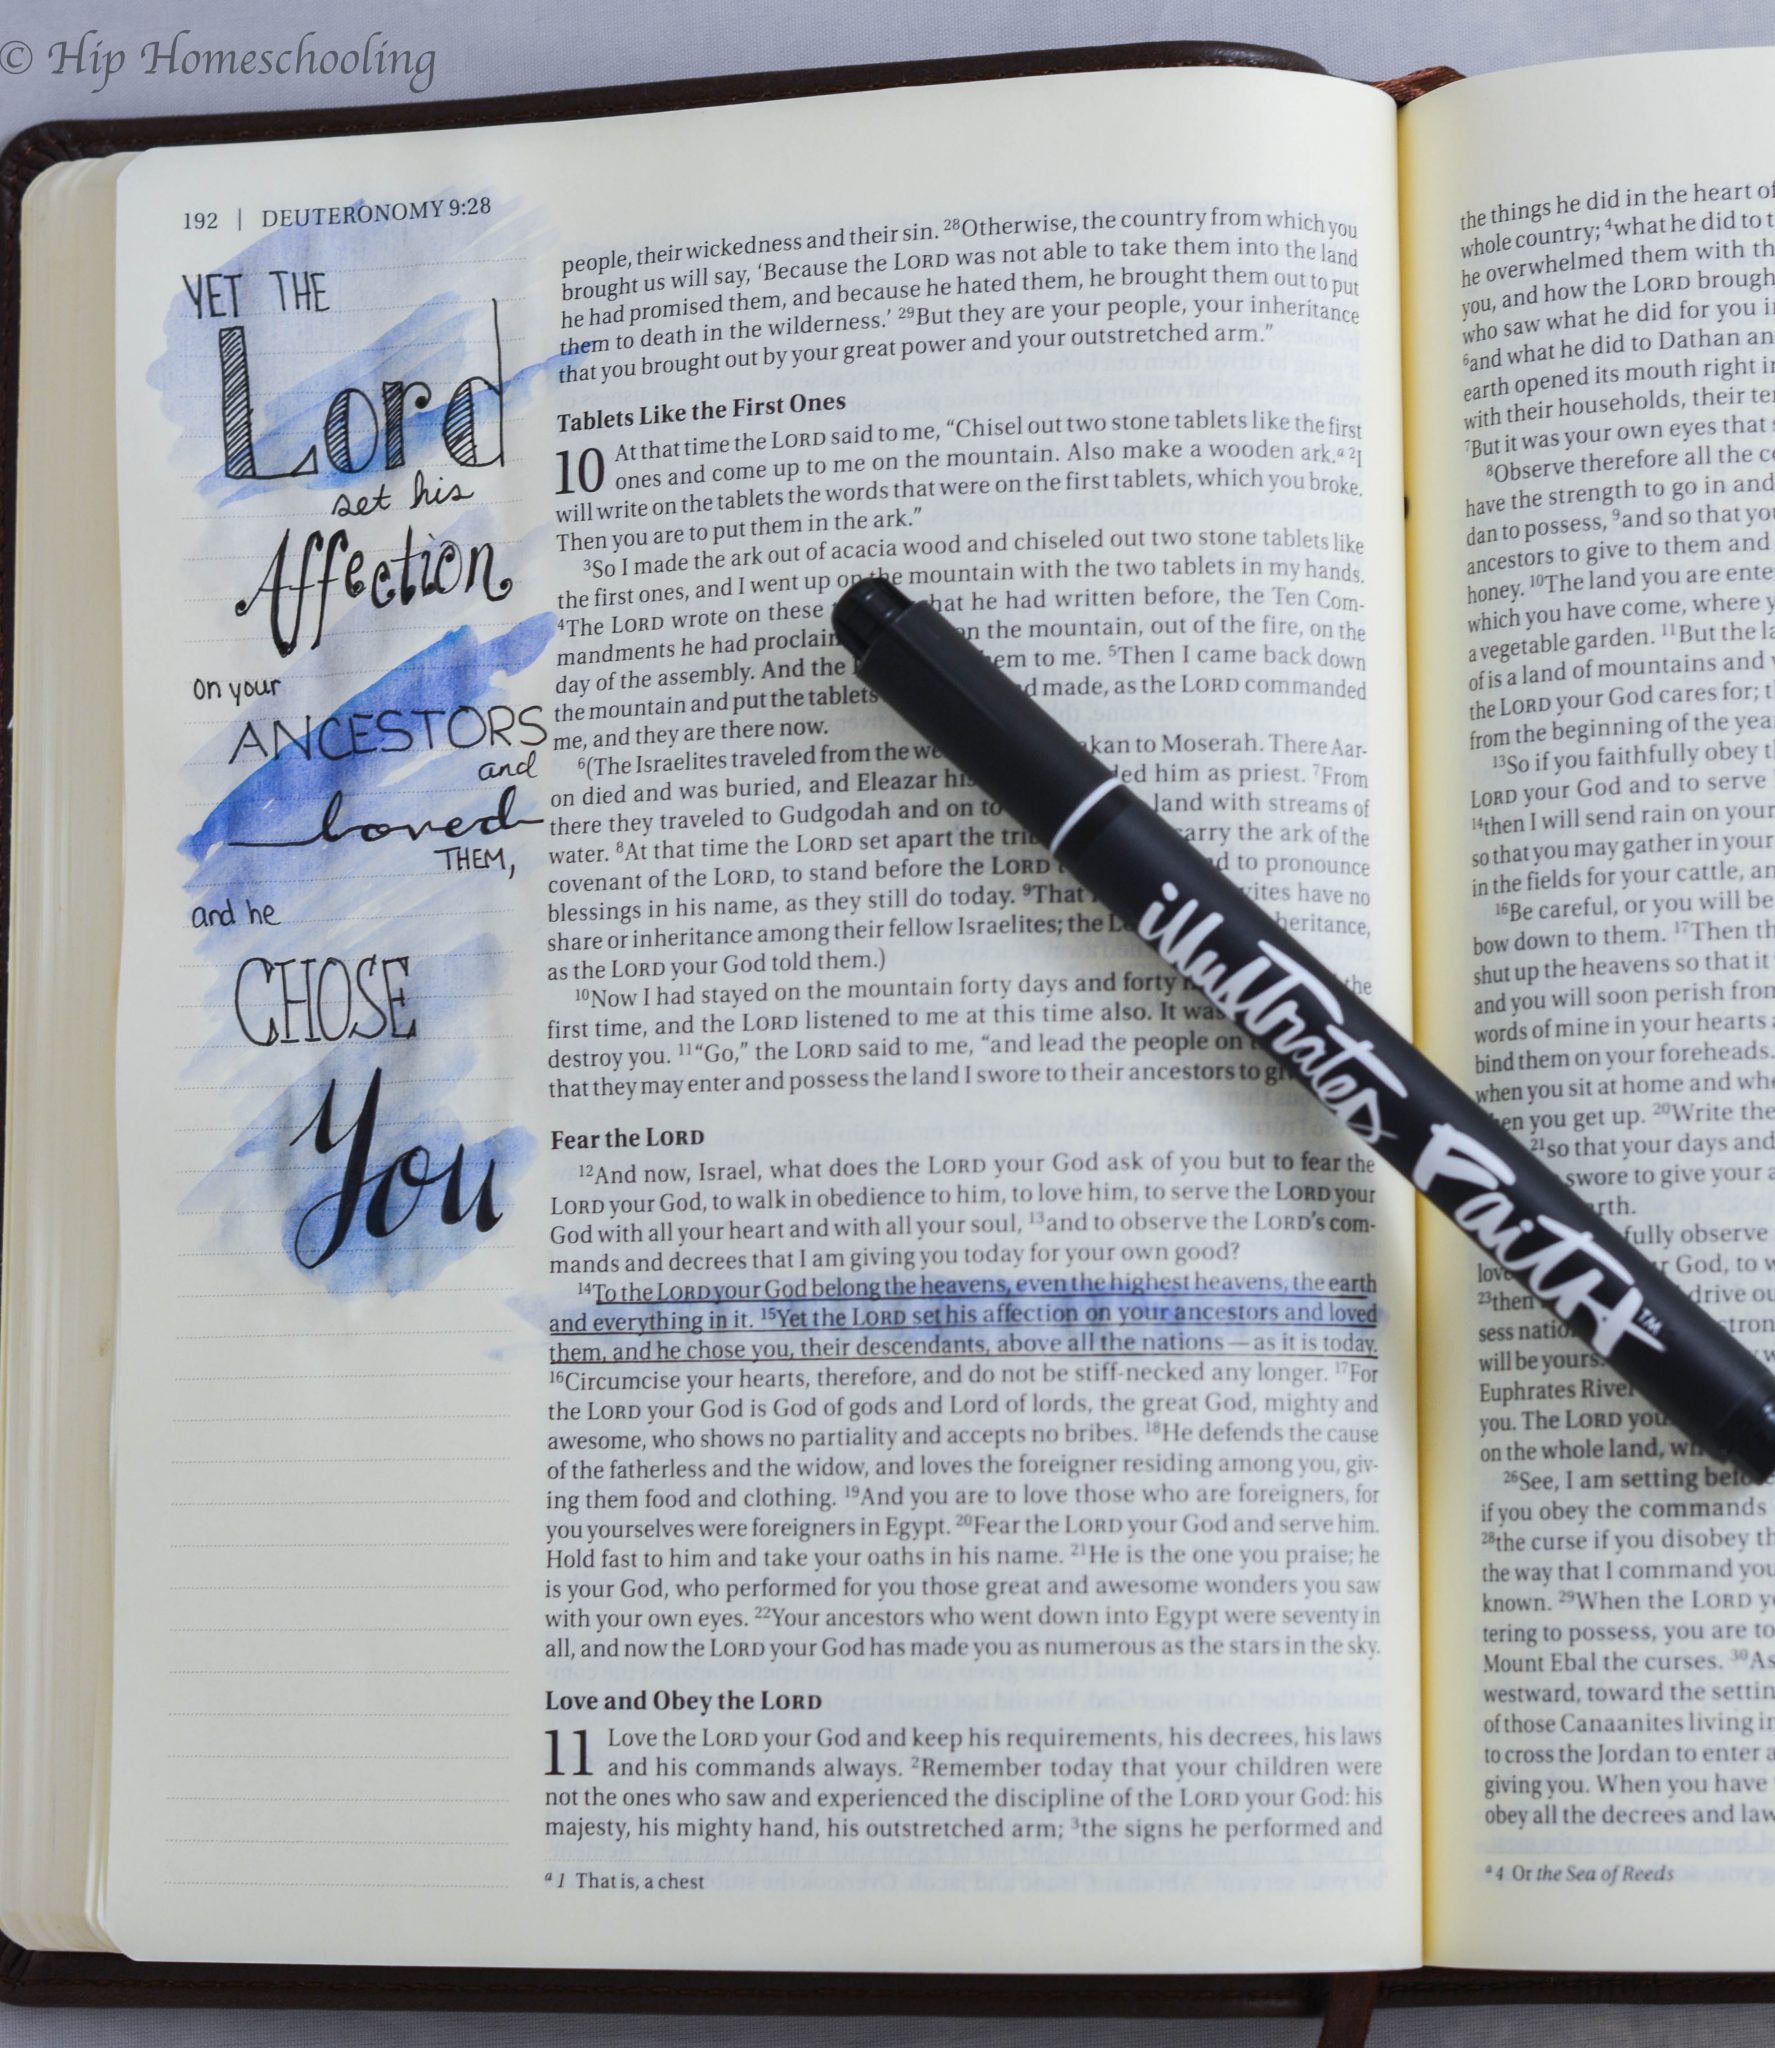 © Hip Homeschooling
192 | DEUTERONOMY 9:28
YET THE
Lord
set his
Affection
on your
ANCESTORS
and
loved
THEM,
and he
CHOSE
You
people, their wickedness and their sin. 28Otherwise, the country from which you
brought us will say, ‘Because the LORD was not able to take them into the land
he had promised them, and because he hated them, he brought them out to put
them to death in the wilderness.’ 29But they are your people, your inheritance
that you brought out by your great power and your outstretched arm.”
Tablets Like the First Ones
10 At that time the LORD said to me, “Chisel out two stone tablets like the first
ones and come up to me on the mountain. Also make a wooden ark.a 2I
will write on the tablets the words that were on the first tablets, which you broke.
Then you are to put them in the ark.”
3So I made the ark out of acacia wood and chiseled out two stone tablets like
the first ones, and I went up on the mountain with the two tablets in my hands.
4The LORD wrote on these hat he had written before, the Ten Com-
mandments he had proclaim on the mountain, out of the fire, on the
day of the assembly. And the em to me. 5Then I came back down
the mountain and put the tablets d made, as the LORD commanded
me, and they are there now.
6(The Israelites traveled from the we akan to Moserah. There Aar-
on died and was buried, and Eleazar his ded him as priest. 7From
there they traveled to Gudgodah and on to land with streams of
water. 8At that time the LORD set apart the trib carry the ark of the
covenant of the LORD, to stand before the LORD d to pronounce
blessings in his name, as they still do today. 9That vites have no
share or inheritance among their fellow Israelites; the heritance,
as the LORD your God told them.)
10Now I had stayed on the mountain forty days and forty the
first time, and the LORD listened to me at this time also. It was
destroy you. 11“Go,” the LORD said to me, “and lead the people on
that they may enter and possess the land I swore to their ancestors to gi
Fear the LORD
12And now, Israel, what does the LORD your God ask of you but to fear the
LORD your God, to walk in obedience to him, to love him, to serve the LORD your
God with all your heart and with all your soul, 13and to observe the LORD’s com-
mands and decrees that I am giving you today for your own good?
14To the LORD your God belong the heavens, even the highest heavens, the earth
and everything in it. 15Yet the LORD set his affection on your ancestors and loved
them, and he chose you, their descendants, above all the nations — as it is today.
16Circumcise your hearts, therefore, and do not be stiff-necked any longer. 17For
the LORD your God is God of gods and Lord of lords, the great God, mighty and
awesome, who shows no partiality and accepts no bribes. 18He defends the cause
of the fatherless and the widow, and loves the foreigner residing among you, giv-
ing them food and clothing. 19And you are to love those who are foreigners, for
you yourselves were foreigners in Egypt. 20Fear the LORD your God and serve him.
Hold fast to him and take your oaths in his name. 21He is the one you praise; he
is your God, who performed for you those great and awesome wonders you saw
with your own eyes. 22Your ancestors who went down into Egypt were seventy in
all, and now the LORD your God has made you as numerous as the stars in the sky.
Love and Obey the LORD
11 Love the LORD your God and keep his requirements, his decrees, his laws
and his commands always. 2Remember today that your children were
not the ones who saw and experienced the discipline of the LORD your God: his
majesty, his mighty hand, his outstretched arm; 3the signs he performed and
a 1 That is, a chest
illustrated Faith™
the things he did in the heart of
whole country; 4what he did to t
he overwhelmed them with th
you, and how the LORD brough
who saw what he did for you i
6and what he did to Dathan an
earth opened its mouth right i
with their households, their te
7But it was your own eyes that s
8Observe therefore all the c
have the strength to go in and
dan to possess, 9and so that yo
ancestors to give to them and
honey. 10The land you are ente
which you have come, where y
a vegetable garden. 11But the la
of is a land of mountains and
the LORD your God cares for; t
from the beginning of the yea
13So if you faithfully obey t
LORD your God and to serve
14then I will send rain on your
so that you may gather in your
in the fields for your cattle, an
16Be careful, or you will be
bow down to them. 17Then th
shut up the heavens so that it
and you will soon perish from
words of mine in your hearts
bind them on your foreheads.
when you sit at home and whe
en you get up. 20Write the
21so that your days and
swore to give your a
rth.
fully observe
love r God, to w
23then drive ou
sess natio stron
will be yours.
Euphrates River
you. The LORD you
on the whole land, wh
26See, I am setting befo
if you obey the commands
28the curse if you disobey th
the way that I command you
known. 29When the LORD y
tering to possess, you are to
Mount Ebal the curses. 30As
westward, toward the settin
of those Canaanites living in
to cross the Jordan to enter a
giving you. When you have
obey all the decrees and law
a 4 Or the Sea of Reeds